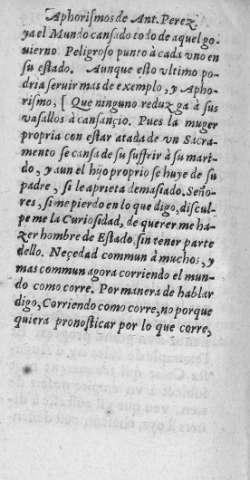 Aphorismos de Ant. Perez
ya el Mundo cansado todo de aquel go-
uierno Peligroso punto à cada vno en
su estado. Aunque esto vltimo po-
dria seruir mas de exemplo, y Apho-
rismo, [ Que ninguno reduzga à sus
vasallos à cansançio. Pues la muger
propria con estar atada de vn Sacra-
mento se cansa de su suffrir à su mari-
do, y aun el hijo proprio se huye de su
padre, si le aprieta demasiado. Seño-
res, si me pierdo en lo que digo, discul-
pe me la Curiosidad, de querer me ha-
zer hombre de Estado, sin tener parte
dello. Neçedad commun à muchos, y
mas commun agora corriendo el mun-
do como corre. Por manera de hablar
digo, Corriendo como corre, no porque
quiera pronosticar por lo que corre,